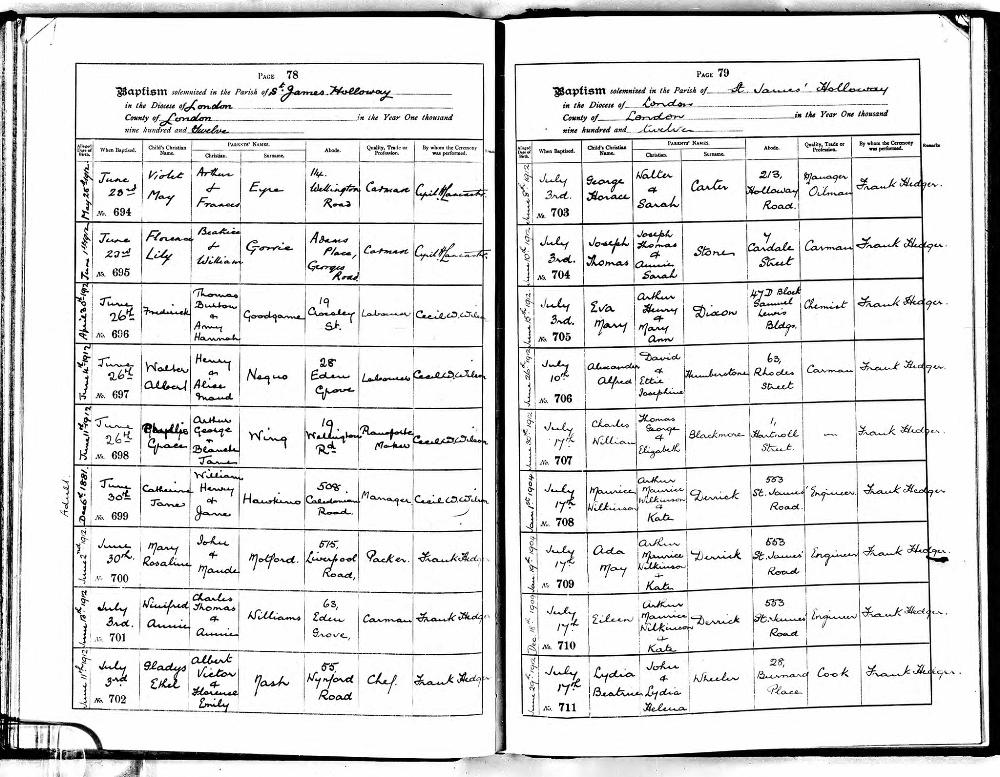 PAGE 78
Baptism solemnized in the Parish of St. James. Holloway
in the Diocese of London
County of London in the Year One thousand
nine hundred and twelve
Alleged Date of Birth. When Baptised. Child's Christian Name. PARENTS' NAMES. Christian. Surname. Abode. Quality, Trade or Profession. By whom the Ceremony was performed.
May 25th 1912 June 23rd No. 694 Violet May Arthur & Frances Eyre 114. Wellington Road Carman
June 1st 1912 June 23rd No. 695 Florence Lily Beatrice & William Gowrie Adams Place, Georges Road Carman
April 30th 1912 June 26th No. 696 Frederick Thomas Burton & Amy Hannah Goodgame 19 St. Labourer Cecil W. Wilson
June 4th 1912 June 26th No. 697 Walter Albert Henry & Alice Maud Neguo 28 Eden Grove Labourer Cecil W. Wilson
June 11th 1912 June 26th No. 698 Phyllis Grace Arthur George & Blanche Jane Wing 19 Wellington Rd Pianoforte Maker Cecil W. Wilson
Adult. Dec 6th 1881 June 30th No. 699 Catherine Jane William Henry & Jane Hawkins 508. Caledonian Road. Manager Cecil W. Wilson
June 2nd 1912 June 30th. No. 700 Mary Rosaline John & Maude Motford. 515. Liverpool Road, Packer. Frank Hedger
June 13th 1912 July 3rd. No. 701 Winifred Annie Charles Thomas & Annie Williams 63, Eden Grove, Carman Frank Hedger
June 11th 1912 July 3rd No. 702 Gladys Ethel Albert Victor & Florence Emily Nash 55 Wynford Road Chef. Frank Hedger
PAGE 79
Baptism solemnized in the Parish of St. James' Holloway
in the Diocese of London
County of London in the Year One thousand
nine hundred and twelve
Alleged Date of Birth. When Baptised. Child's Christian Name. PARENTS' NAMES. Christian. Surname. Abode. Quality, Trade or Profession. By whom the Ceremony was performed. Remarks
1912 July 3rd. No. 703 George Horace Walter & Sarah Carter 213, Holloway Road. Manager Oilman Frank Hedger.
June 10th 1912 July 3rd. No. 704 Joseph Thomas Joseph Thomas & Annie Sarah Stone 7 Cardale Street Carman Frank Hedger.
June 15th 1912 July 3rd. No. 705 Eva Mary Arthur Henry & Mary Ann Dixon 47 D Block Samuel Lewis Bldgs. Chemist Frank Hedger.
June 26th 1912 July 10th No. 706 Alexander Alfred David & Ettie Josephine Humberstone 63, Rhodes Street Carman Frank Hedger.
June 30th 1912 July 17th No. 707 Charles William Thomas George & Elizabeth Blackmore 1, Hartnoll Street. — Frank Hedger.
June 1st 1904 July 17th No. 708 Maurice Wilkinson Arthur Maurice Wilkinson & Kate Derrick 553 St. James' Road. Engineer. Frank Hedger
June 19th 1904 July 17th No. 709 Ada May Arthur Maurice Wilkinson + Kate Derrick 553 St. James' Road Engineer Frank Hedger.
Dec 18th July 17th No. 710 Eileen Arthur Maurice Wilkinson + Kate Derrick 553 St. James' Road Engineer Frank Hedger.
June 29th 1912 July 17th No. 711 Lydia Beatrice John & Lydia Helena Wheeler 28, Burnard Place Cook Frank Hedger.